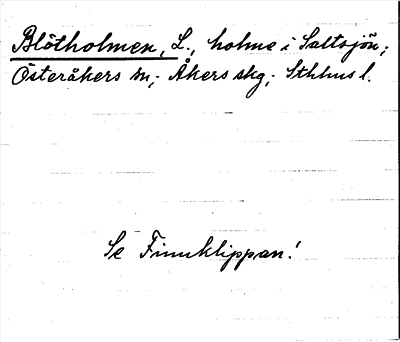 Blötholmen, L., holme i Saltsjön;
Österåkers sn; Åkers skg; Sthlms l.
Se Finnklippan!